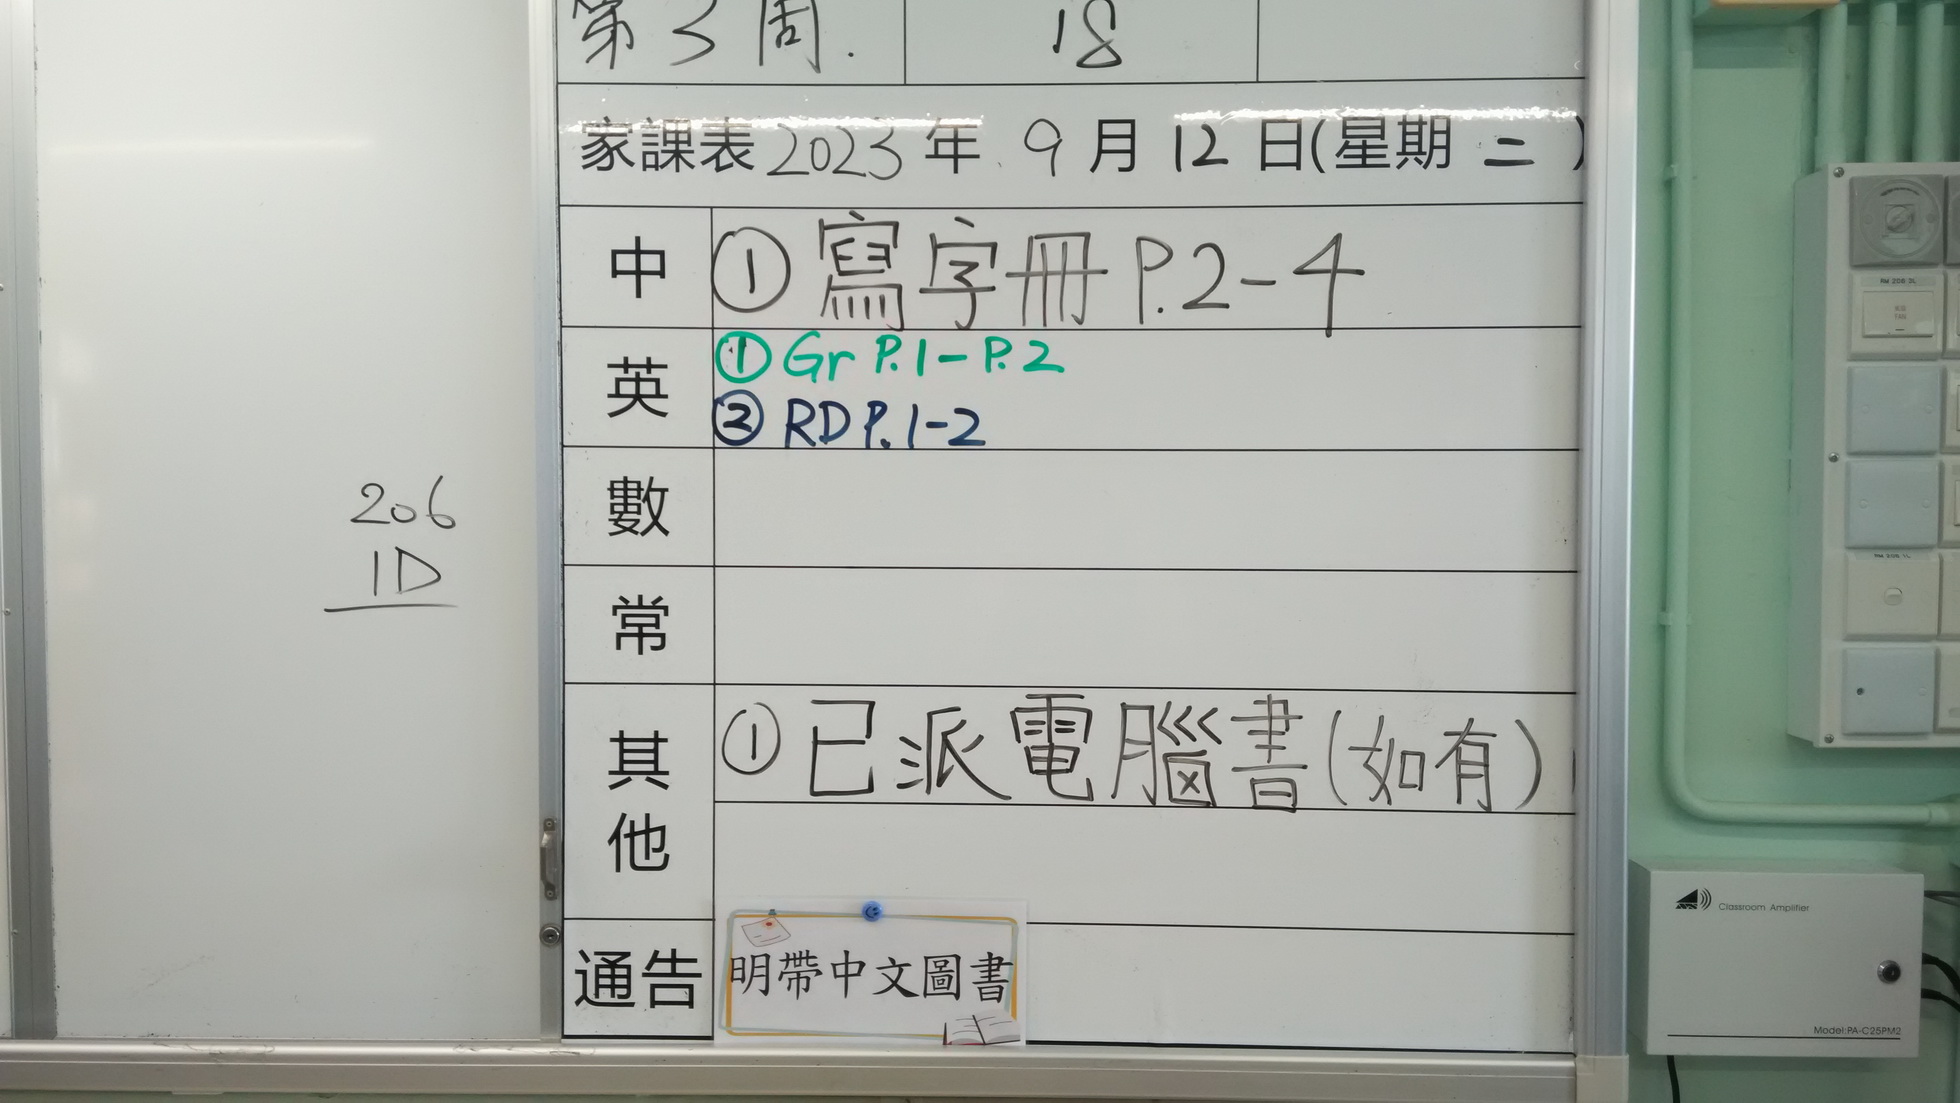 第3周.
18
家課表 2023 年 9 月 12 日(星期 二 )
中
① 寫字冊 P.2-4
英
① Gr P.1-P.2
② RD P.1-2
數
常
其他
① 已派電腦書(如有)
通告
明帶中文圖書
206
1D
RM 206 2L
Classroom Amplifier
Model:PA-C25PM2